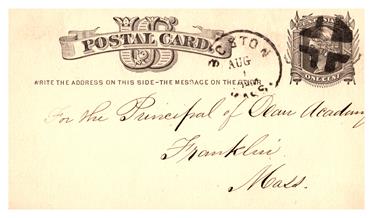 U S
POSTAL CARD
BOSTON
AUG
1
MASS.
WRITE THE ADDRESS ON THIS SIDE-THE MESSAGE ON THE OTHER
ONE CENT
For the Principal of Dean Academy
Franklin
Mass.